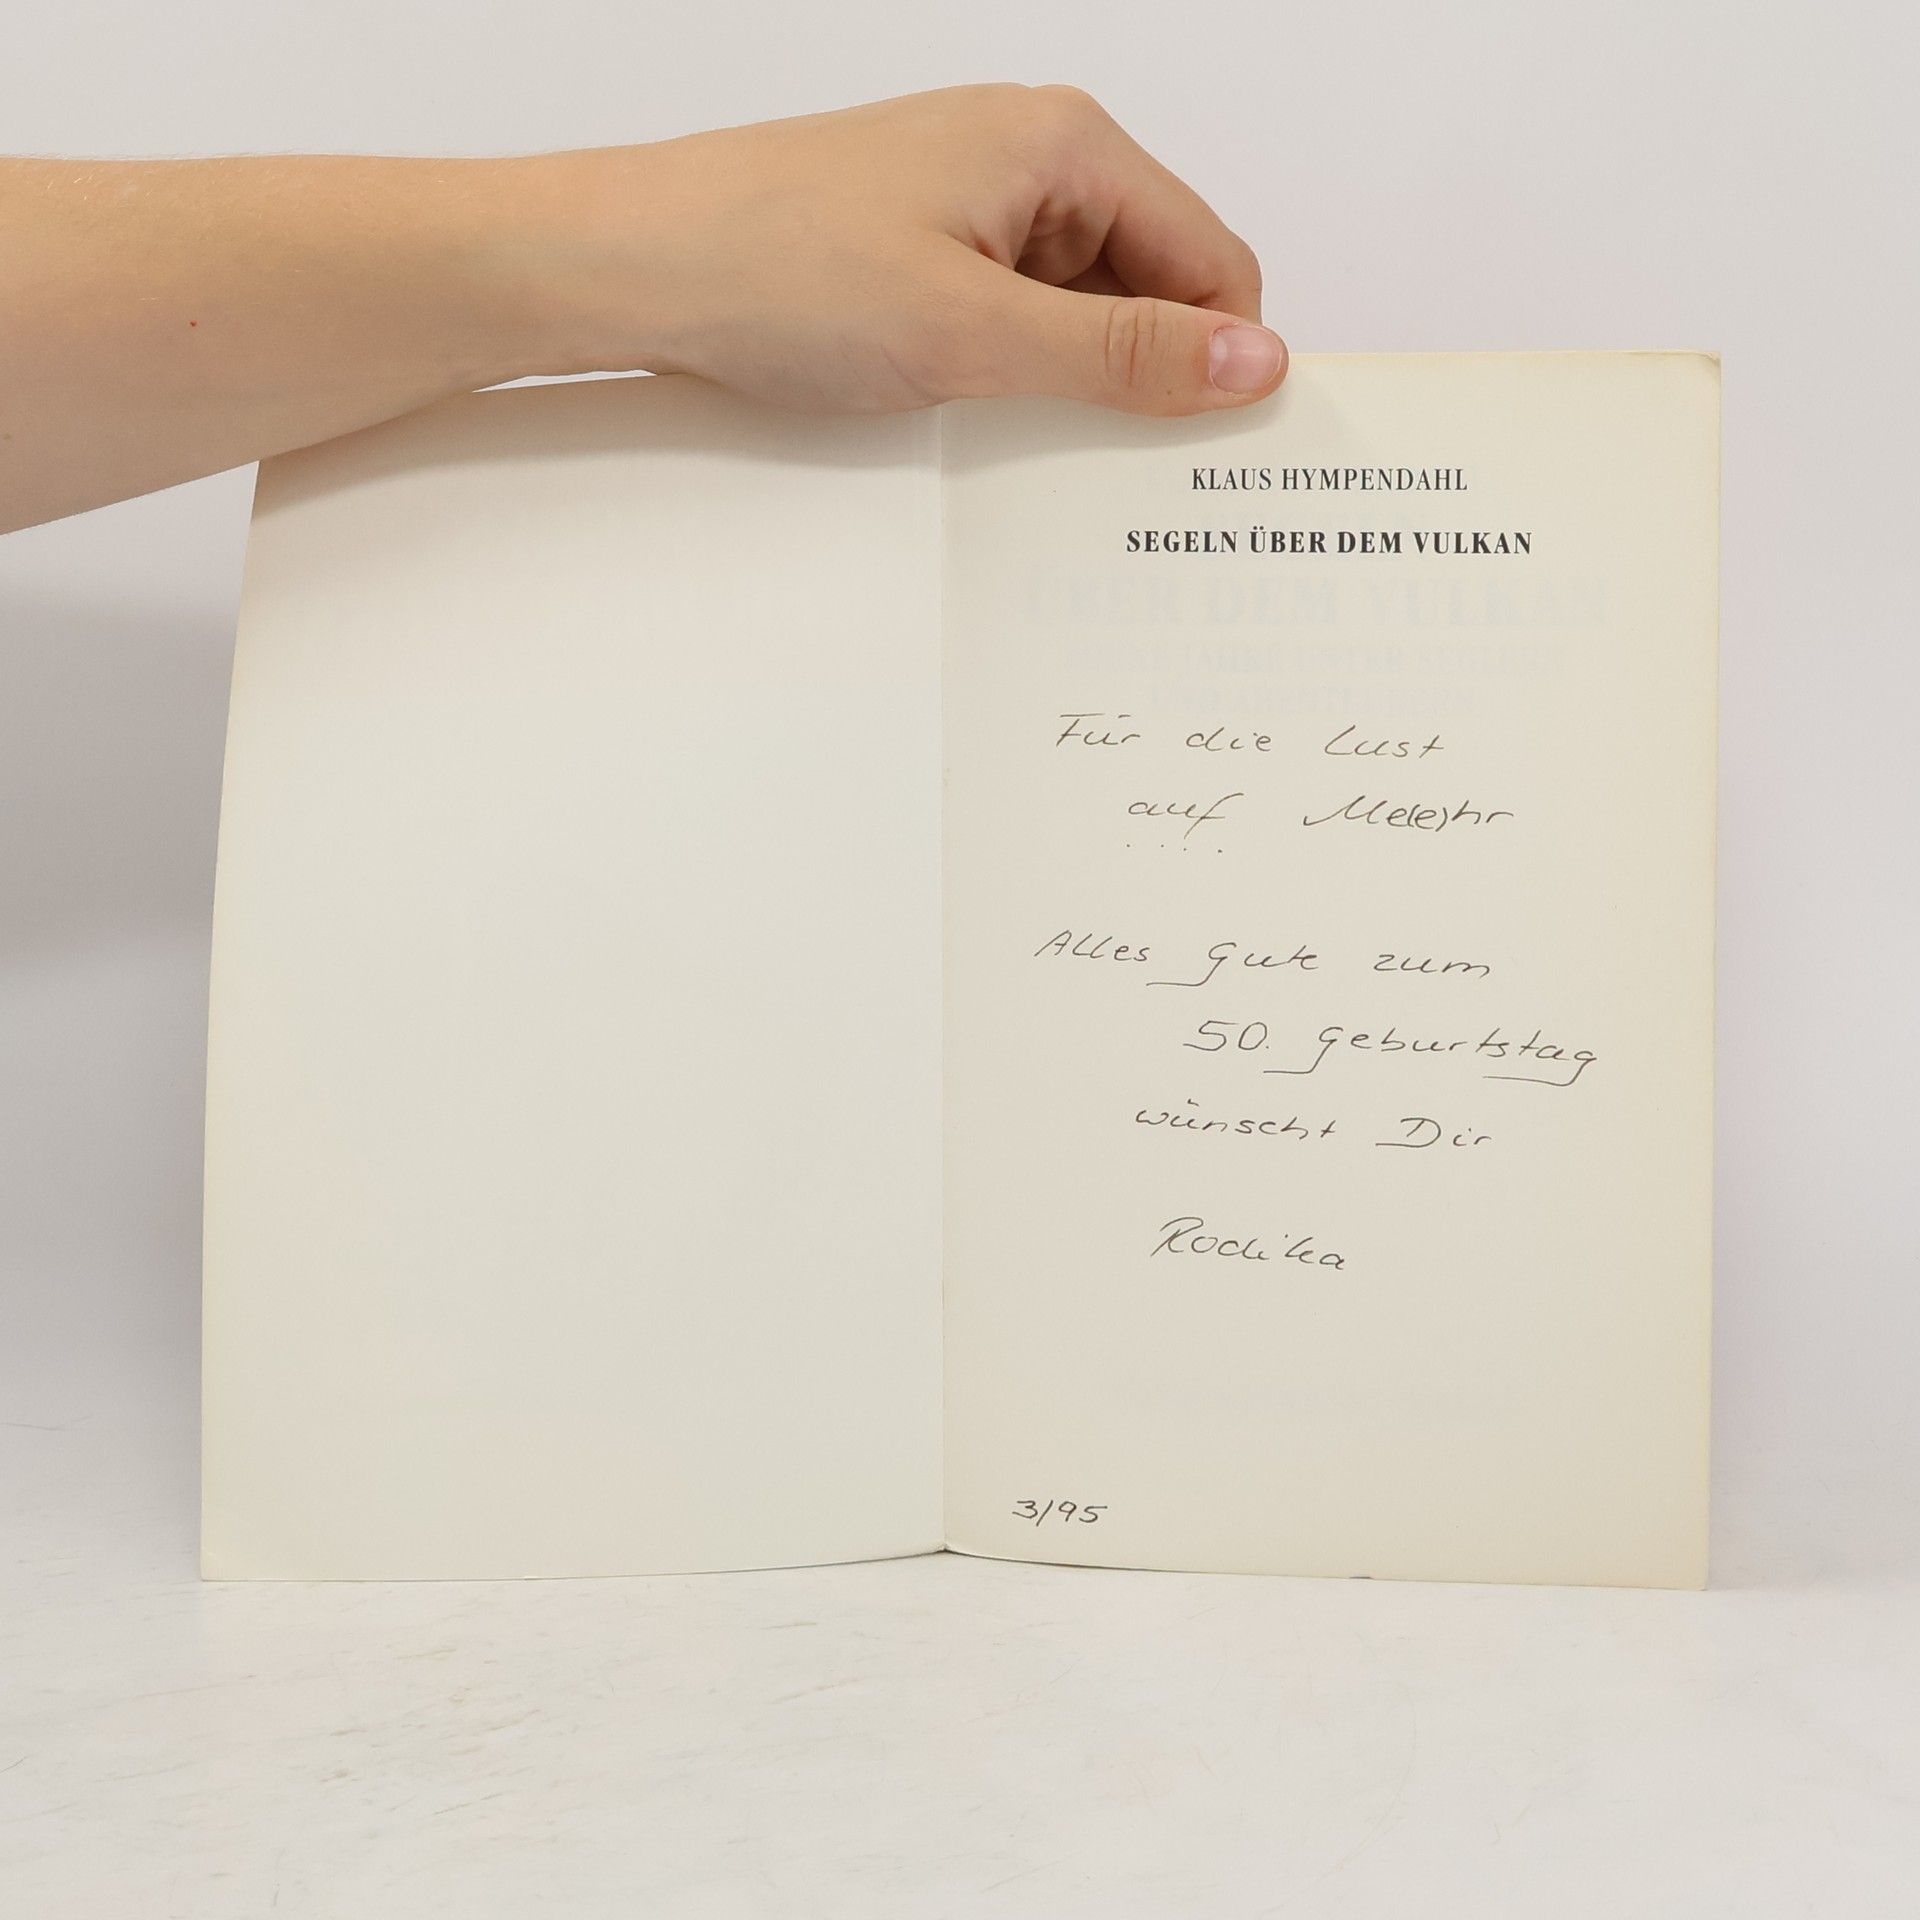 KLAUS HYMPENDAHL
SEGELN ÜBER DEM VULKAN
Für die Lust
auf Me(e)hr
....
Alles Gute zum
50. Geburtstag
wünscht Dir
Rodika
3/95